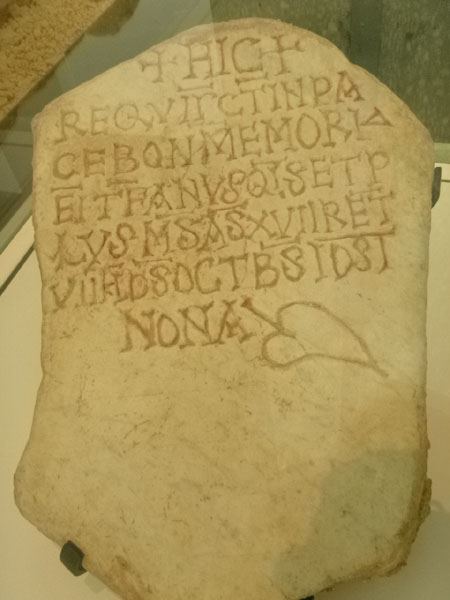 + HIC +
REQVIICTINPA
CEBONMEMORIA
EITFANVSQISETP
LVSMSASXVIIRET
VIIIIDSOCTBSIDST
NONA